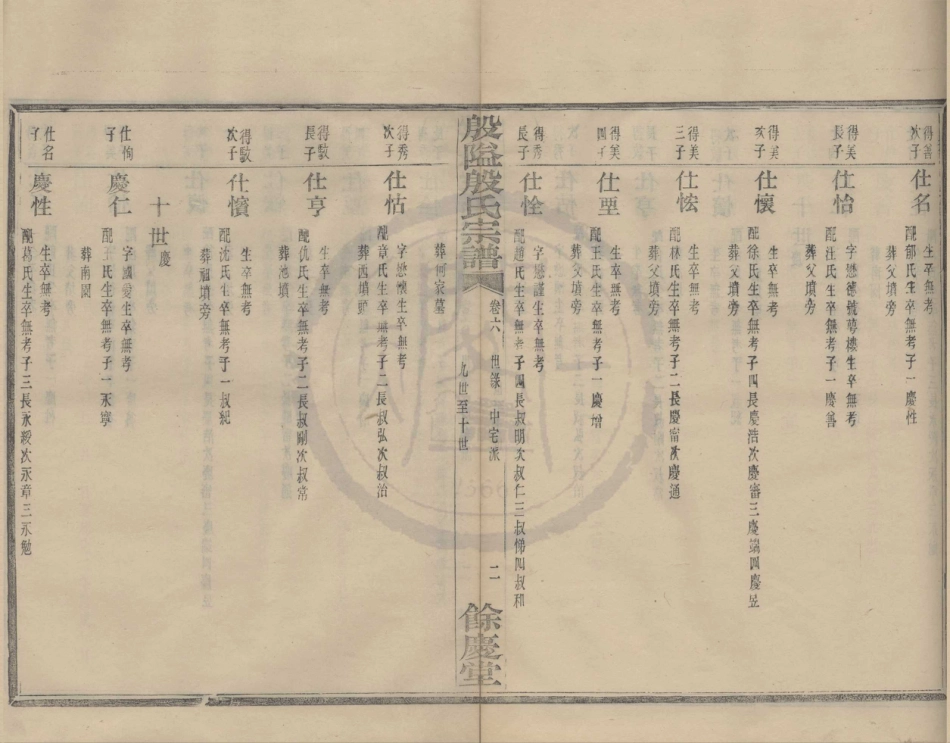 得善
次子
仕名
生卒無考
配鄒氏生卒無考子一慶性
葬父墳旁
得美
長子
仕怡
字懋德號萼樓生卒無考
配汪氏生卒無考子一慶善
葬父墳旁
得美
次子
仕懷
生卒無考
配徐氏生卒無考子四長慶浩次慶審三慶端四慶昱
葬祖墳旁
得美
三子
仕恡
生卒無考
配林氏生卒無考子二長慶甯次慶通
葬父墳旁
得美
四子
仕堊
生卒無考
配王氏生卒無考子一慶增
葬父墳旁
得秀
長子
仕恮
字懋謹生卒無考
配趙氏生卒無考子四長叔明次叔仁三叔悌四叔和
葬何家墓
殷隘殷氏宗譜
卷六
世錄
中宅派
九世至十世
二
餘慶堂
得秀
次子
仕怙
字懋懷生卒無考
配章氏生卒無考子二長叔弘次叔治
葬西墳頭
得敭
長子
仕亨
生卒無考
配仇氏生卒無考子二長叔剛次叔常
葬池墳
得敭
次子
仕憤
生卒無考
配沈氏生卒無考子一叔紀
葬祖墳旁
十世慶
仕恂
子
慶仁
字 愛生卒無考
配 氏生卒無考子一永寧
葬南園
仕名
子
慶性
生卒無考
配楊氏生卒無考子三長永綬次永章三永勉